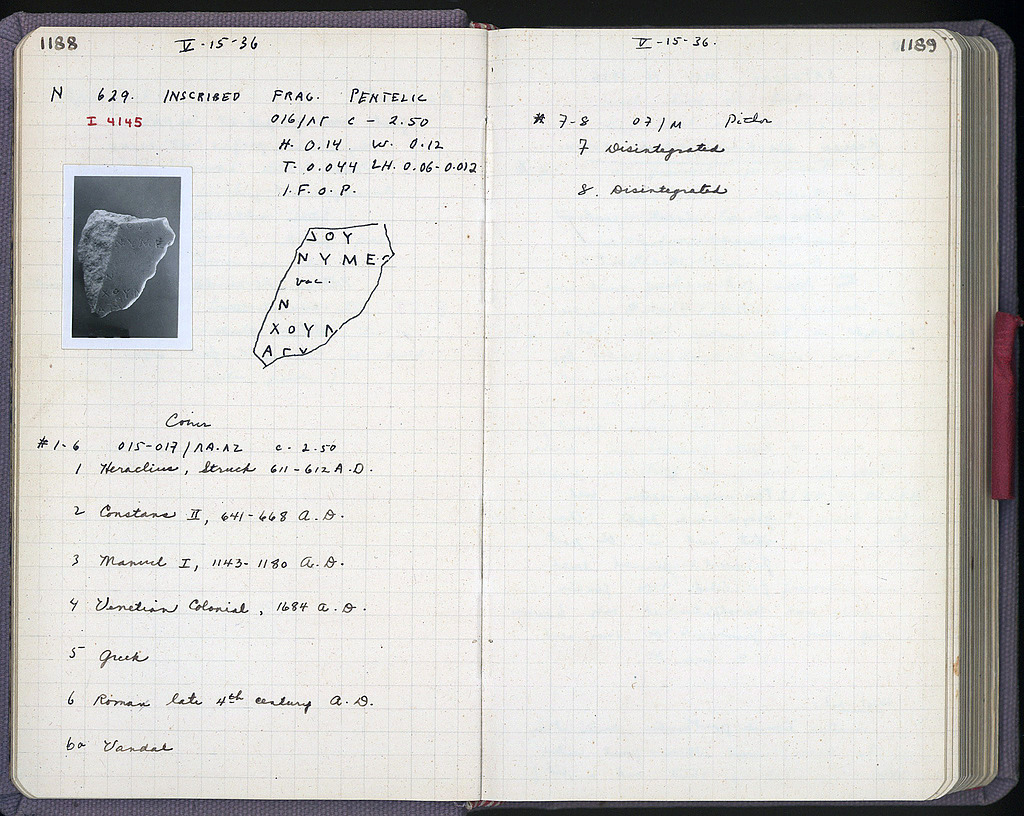 1188
V-15-36
N 629. INSCRIBED FRAG. PENTELIC
I 4145
016/ΛΓ c - 2.50
H. 0.14 W. 0.12
T. 0.044 LH. 0.06-0.012
I. F. O. P.
ΟΥ
ΝΥΜΕ
vac.
Ν
ΧΟΥΛ
ΑΓΥ
Coins
#1-6 015-017/ΛΑ.ΛΖ c - 2.50
1 Heraclius, Struck 611-612 A.D.
2 Constans II, 641-668 A.D.
3 Manuel I, 1143-1180 A.D.
4 Venetian Colonial, 1684 A.D.
5 Greek
6 Roman late 4th century A.D.
6a Vandal
V-15-36.
1189
# 7-8 07/Μ Pithos
7 Disintegrated
8. Disintegrated